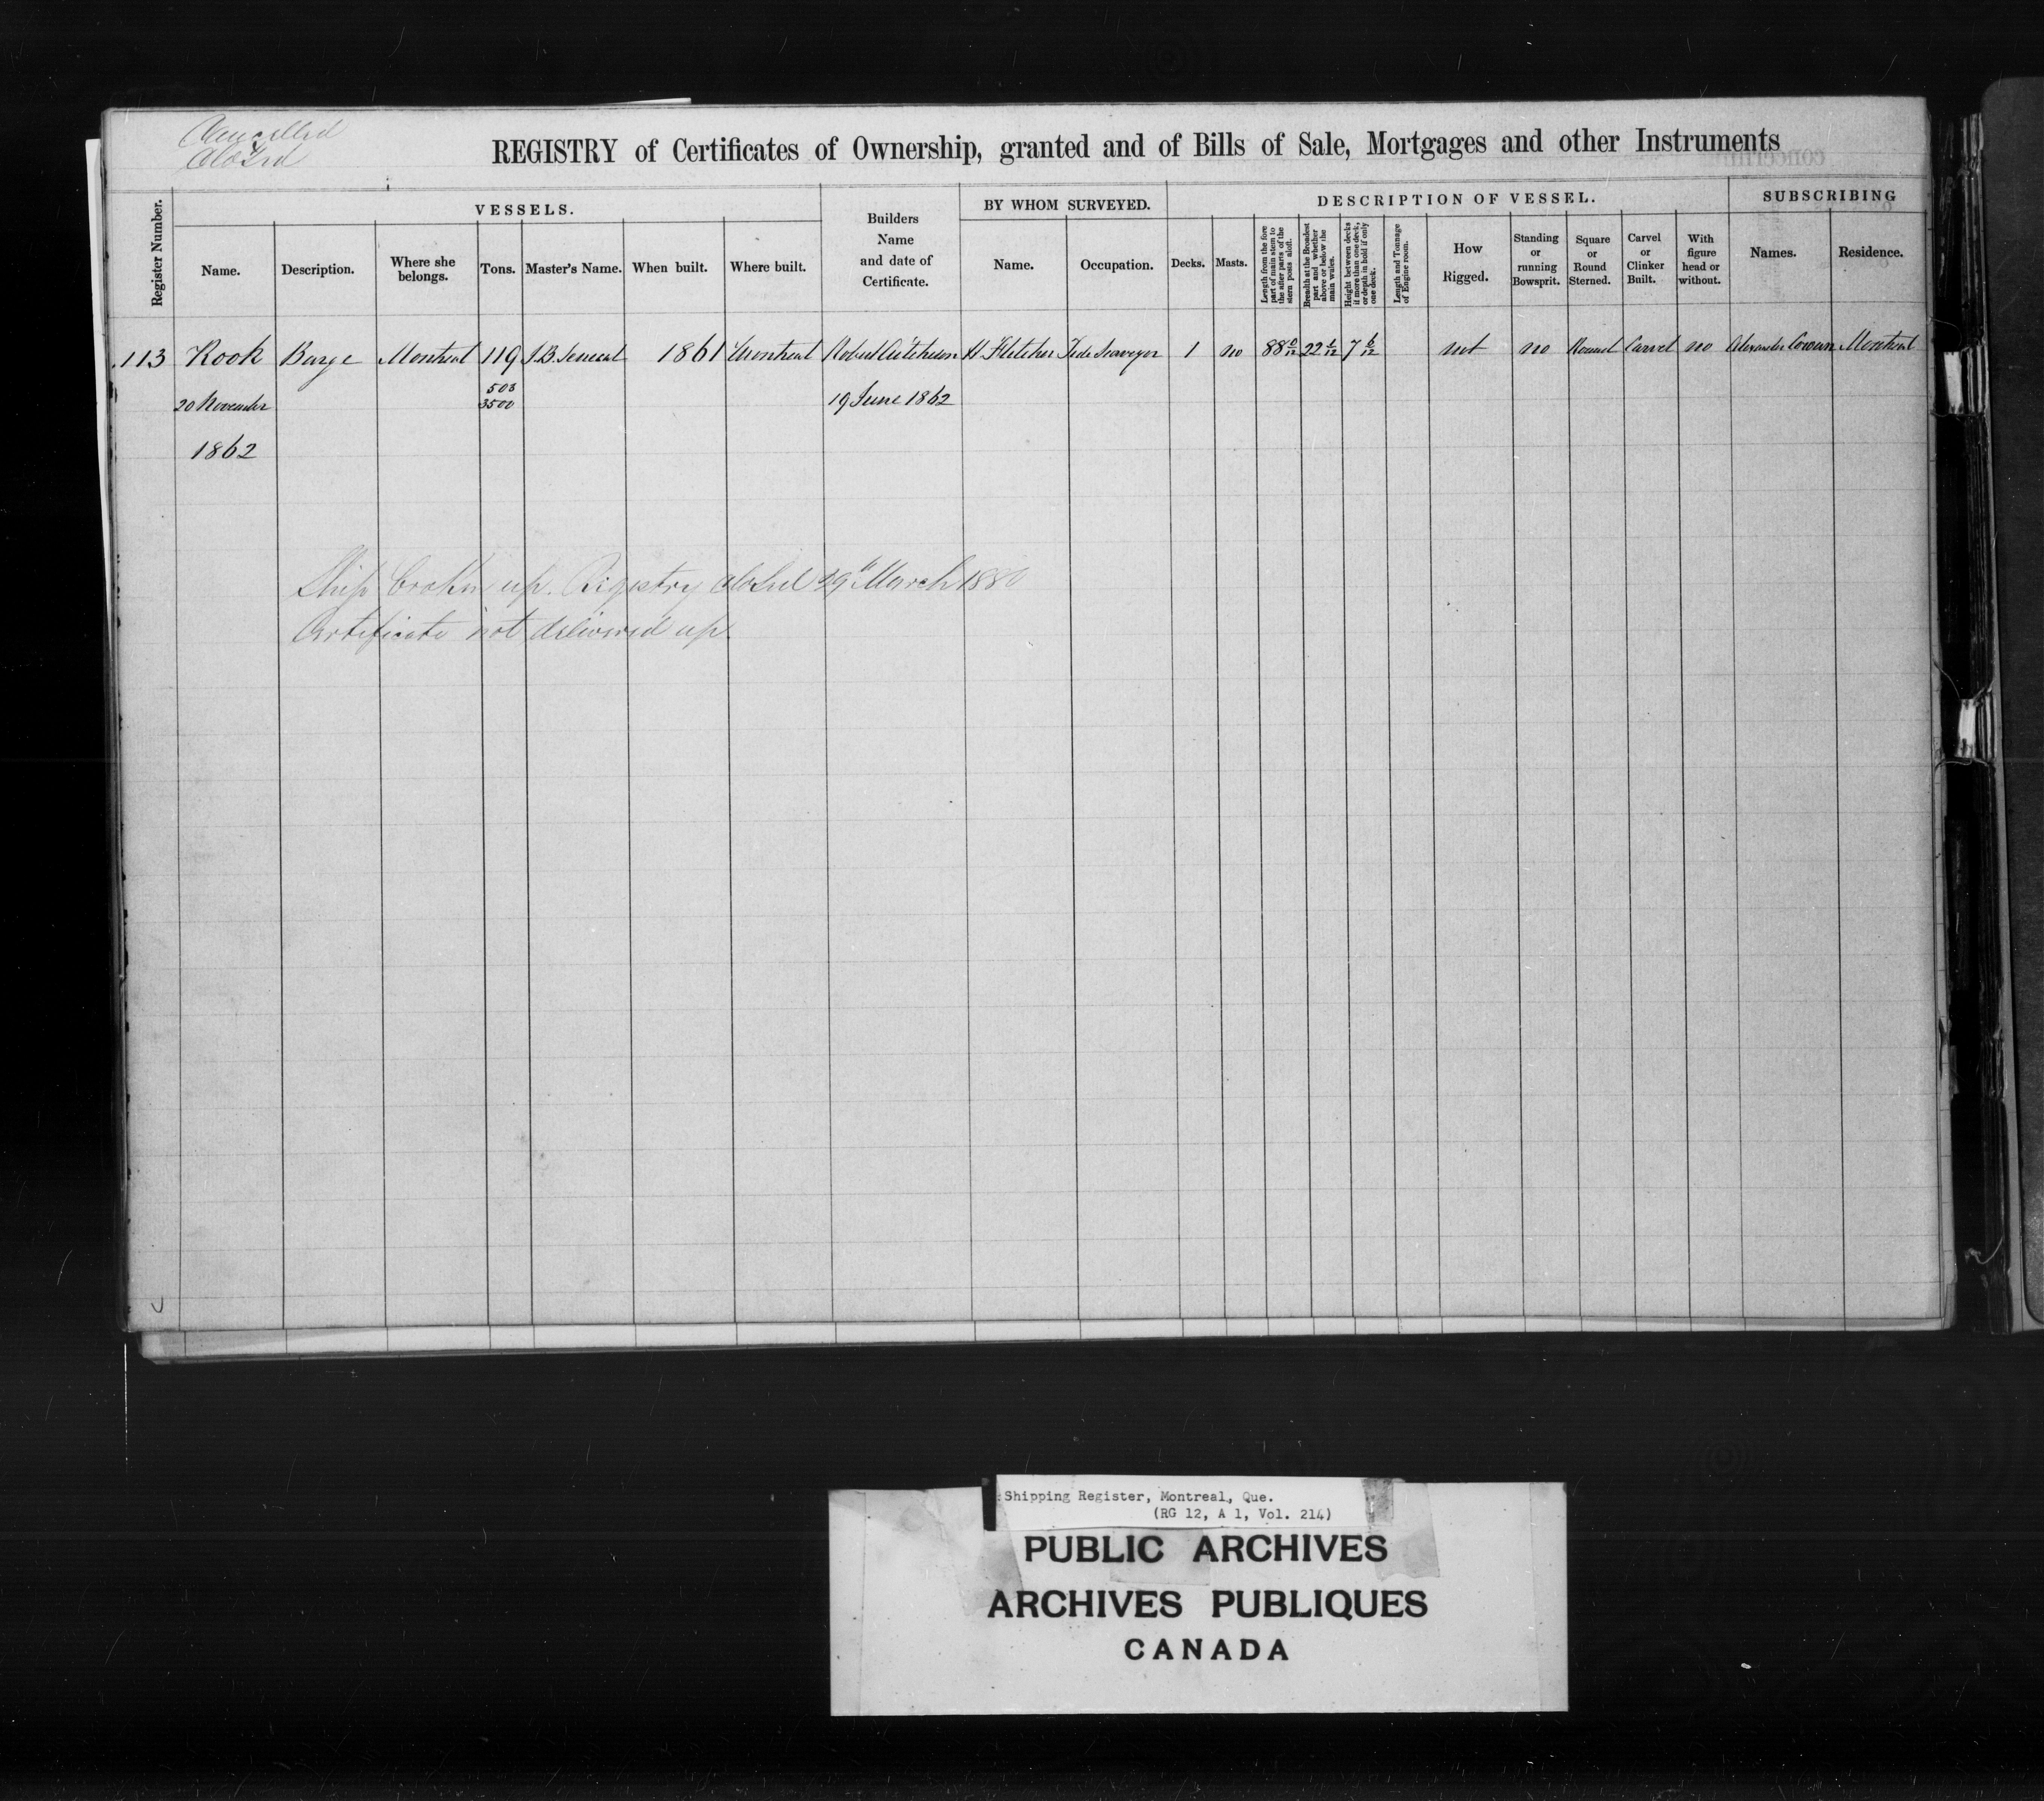 Cancelled
Closed
REGISTRY of Certificates of Ownership, granted and of Bills of Sale, Mortgages and other Instruments
Register Number.
VESSELS.
Name.
Description.
Where she belongs.
Tons.
Master's Name.
When built.
Where built.
Builders Name and date of Certificate.
BY WHOM SURVEYED.
Name.
Occupation.
DESCRIPTION OF VESSEL.
Decks.
Masts.
Length from the fore part of main stem to the after parts of the stern posts aloft.
Breadth at the Broadest part and whether above or below the main wales.
Height between decks if more than one deck, or depth in hold if only one deck.
Length and Tonnage of Engine room.
How Rigged.
Standing or running Bowsprit.
Square or Round Sterned.
Carvel or Clinker Built.
With figure head or without.
SUBSCRIBING
Names.
Residence.
113 Rook Barge Montreal 119 J.B. Senecal 1861 Montreal Robert H Fletcher Tide Surveyor 1 no 88 22 7 6/12 not no Round Carvel no Alexander Montreal
508
20 November 3500 19 June 1862
1862
Ship broken up. Registry closed 29th March 1880
Certificate not delivered up.
Shipping Register, Montreal, Que.
(RG 12, A 1, Vol. 214)
PUBLIC ARCHIVES
ARCHIVES PUBLIQUES
CANADA